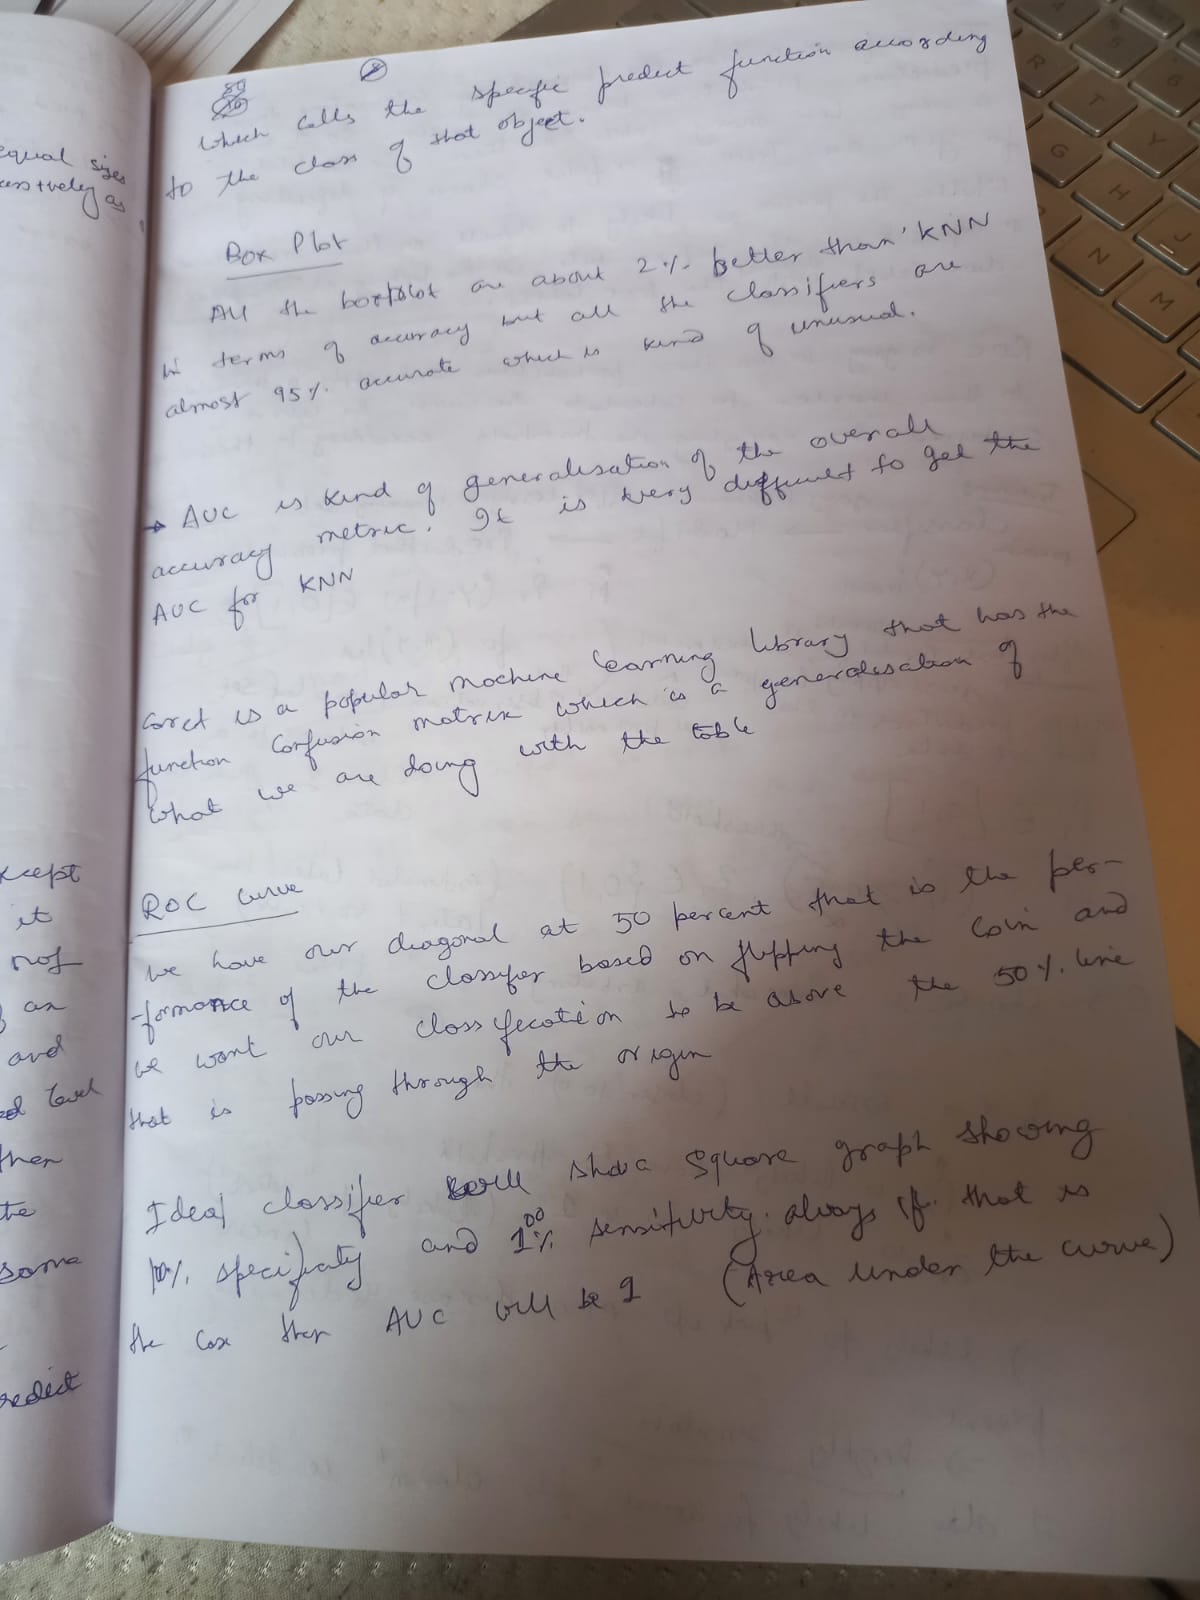 equal sizes
as
which calls the specific predict function according
to the class of that object.
Box Plot
All the boxplot are about 2% better than KNN
in terms of accuracy but all the classifiers are
almost 95% accurate which is kind of unusual.
→ AUC is kind of generalisation of the overall
accuracy metric. It is very difficult to get the
AUC for KNN
Caret is a popular machine learning library that has the
function Confusion matrix which is a generalisation of
what we are doing with the table
ROC Curve
We have our diagonal at 50 percent that is the per-
-formance of the classifier based on flipping the coin and
we want our classification to be above the 50% line
that is passing through the origin
Ideal classifier will show a square graph showing
100% specificity and 100% sensitivity. always if that is
the case then AUC will be 1 (Area under the curve)
it
an
and
then
the
same